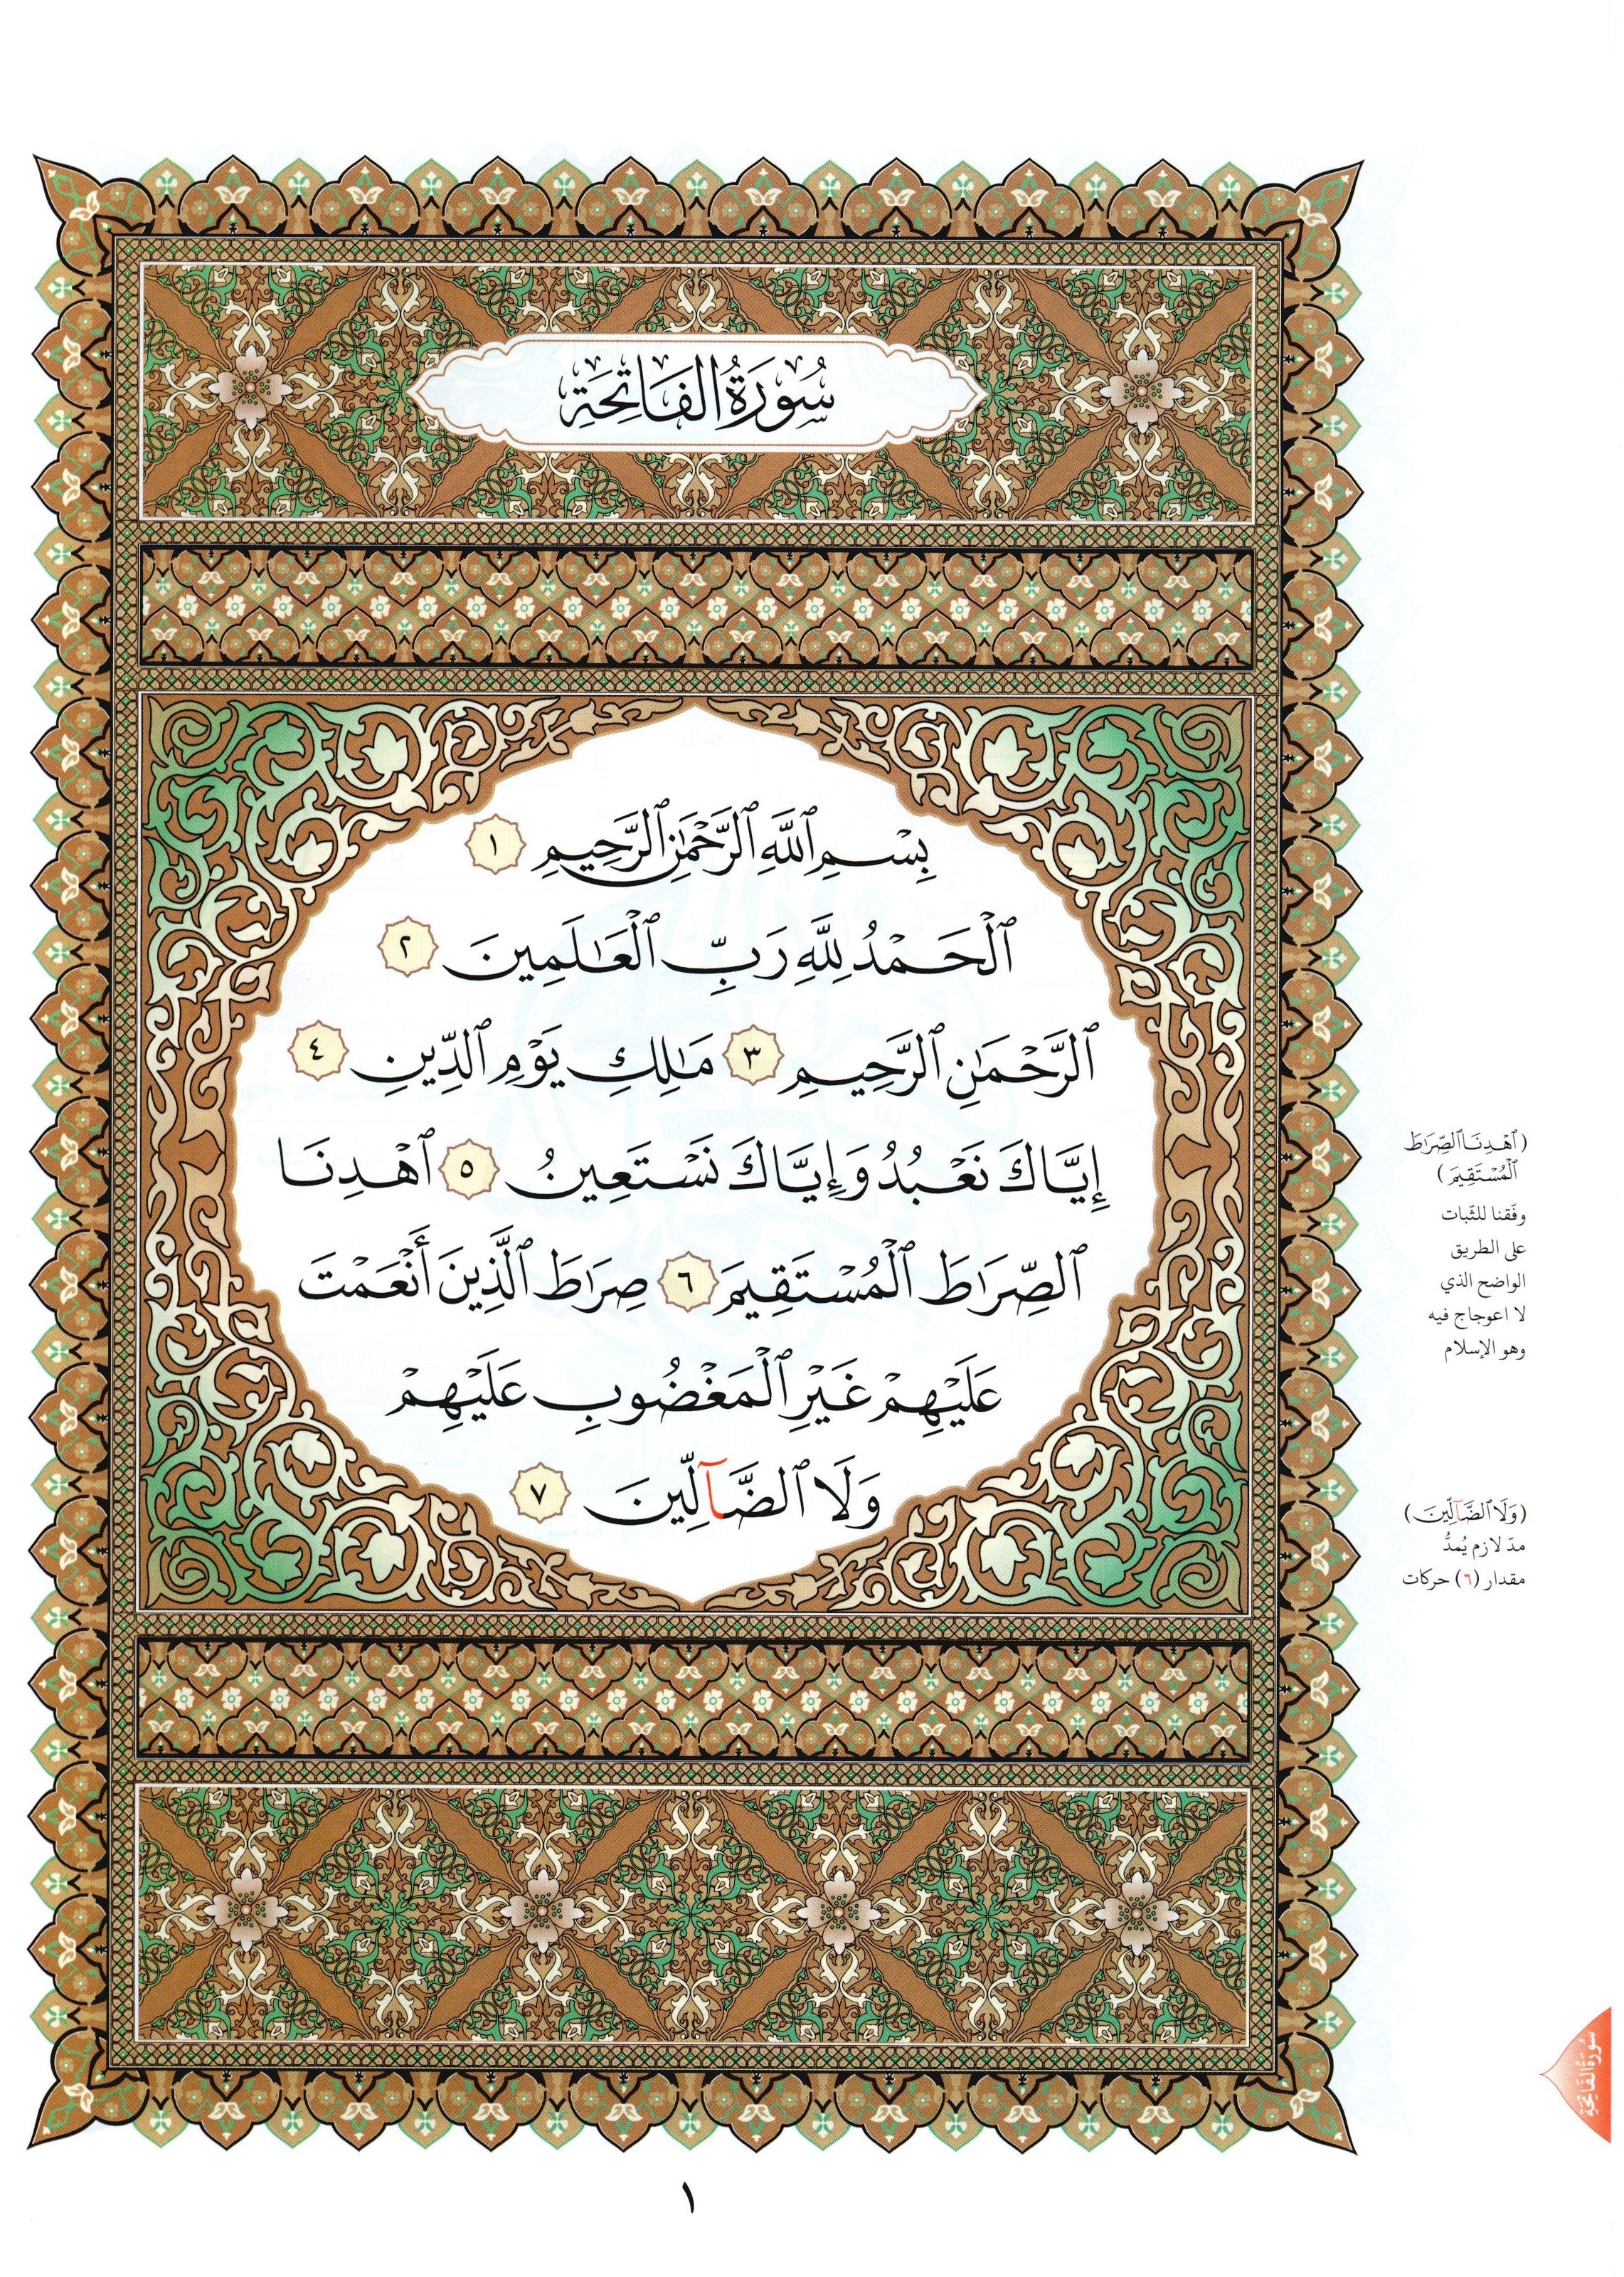 سُورَةُ الفَاتِحَةِ
بِسْمِ ٱللَّهِ ٱلرَّحْمَٰنِ ٱلرَّحِيمِ ١
ٱلْحَمْدُ لِلَّهِ رَبِّ ٱلْعَٰلَمِينَ ٢
ٱلرَّحْمَٰنِ ٱلرَّحِيمِ ٣ مَٰلِكِ يَوْمِ ٱلدِّينِ ٤
إِيَّاكَ نَعْبُدُ وَإِيَّاكَ نَسْتَعِينُ ٥ ٱهْدِنَا
ٱلصِّرَٰطَ ٱلْمُسْتَقِيمَ ٦ صِرَٰطَ ٱلَّذِينَ أَنْعَمْتَ
عَلَيْهِمْ غَيْرِ ٱلْمَغْضُوبِ عَلَيْهِمْ
وَلَا ٱلضَّآلِّينَ ٧
(ٱهْدِنَا ٱلصِّرَٰطَ
ٱلْمُسْتَقِيمَ)
وفّقنا للثّبات
على الطريق
الواضح الذي
لا اعوجاج فيه
وهو الإسلام
(وَلَا ٱلضَّآلِّينَ)
مدّ لازم يُمدُّ
مقدار (٦) حركات
سُورَةُ الفَاتِحَةِ
١